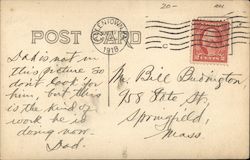 20-
POST CARD
1918
Dad is not on
this picture so
don't look for
him. but this
is the kind of
work he is
doing now.
Dad.
Mr. Bill Budington,
758 State St,
Springfield,
Mass.